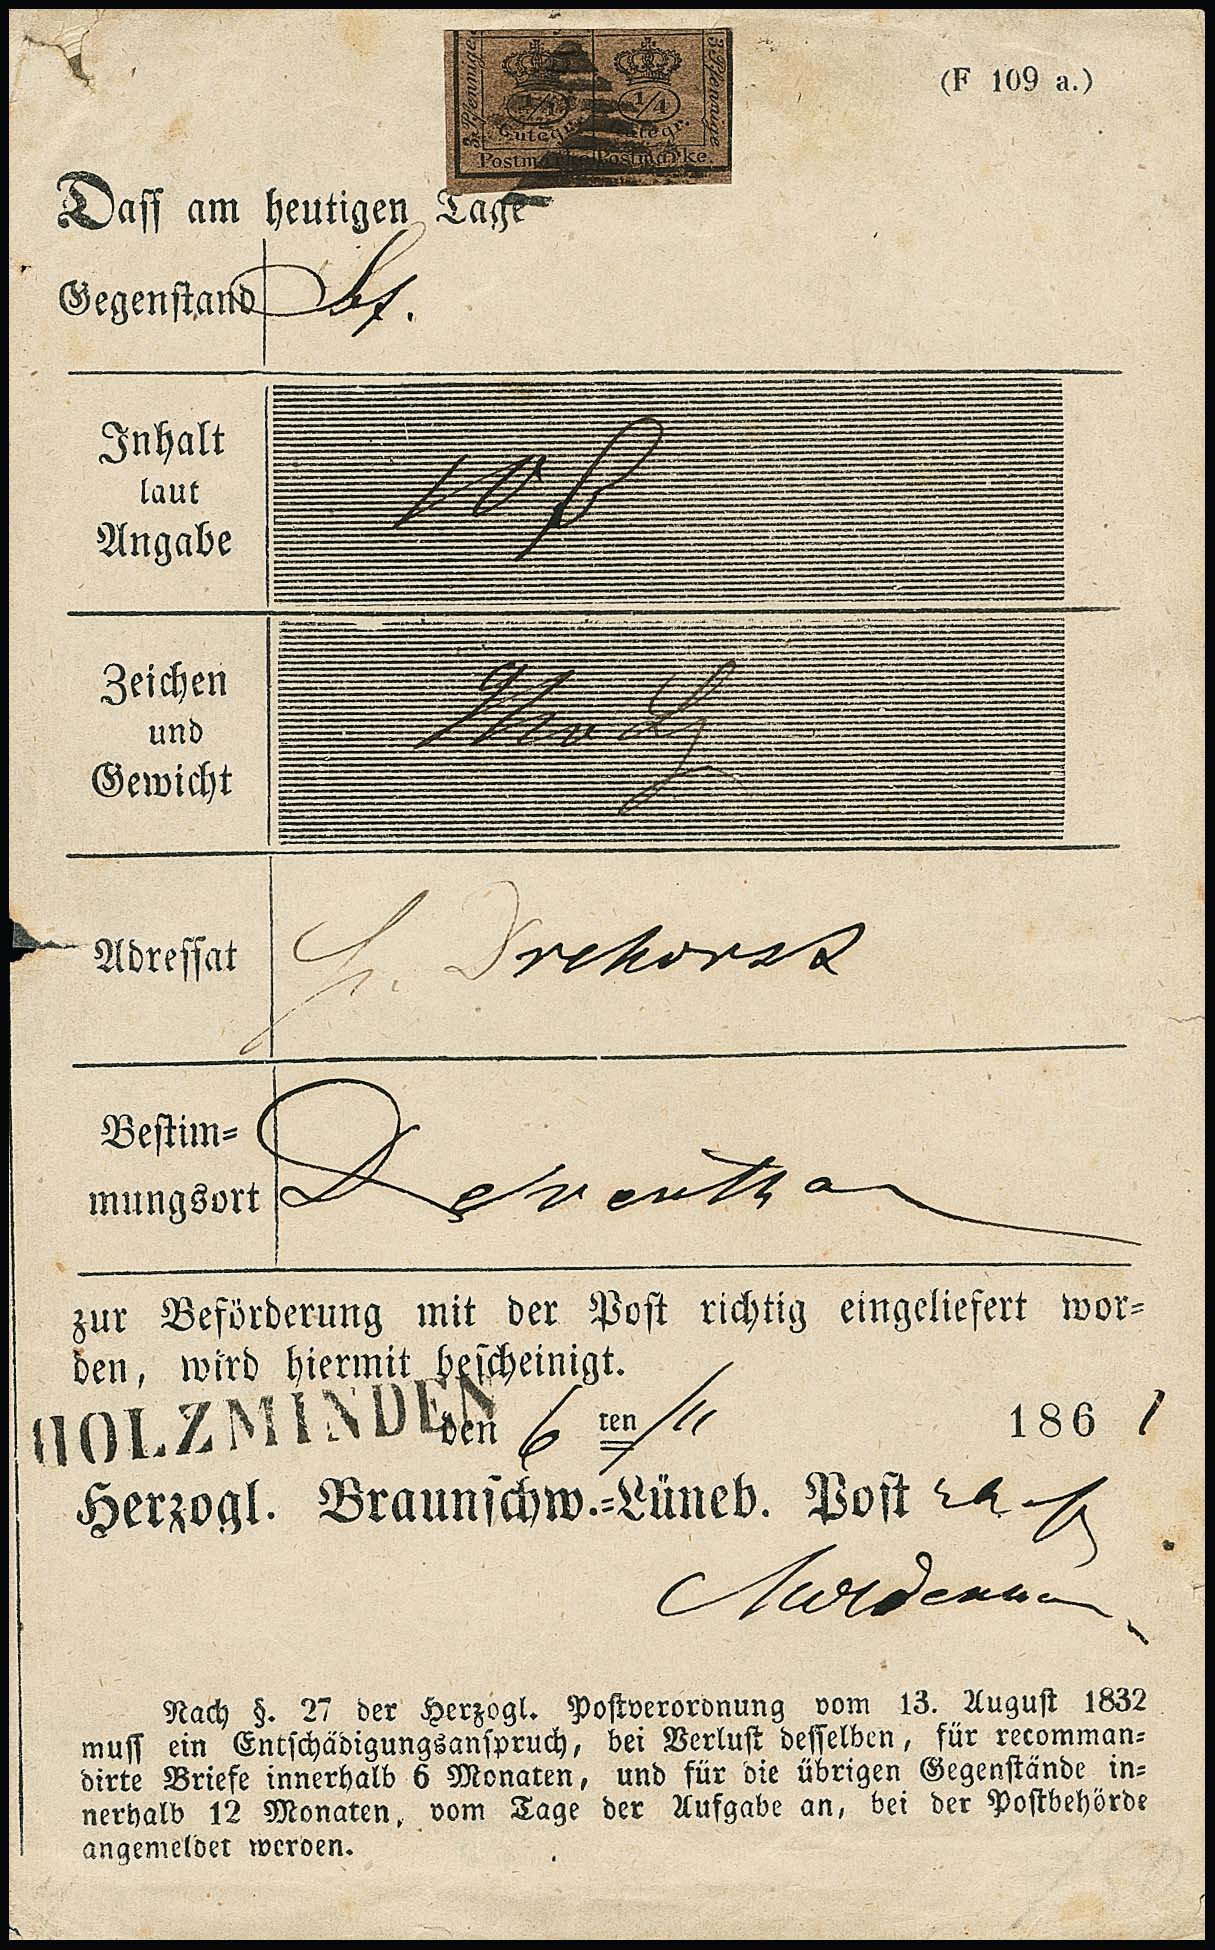 3 Pfennige. 1/4 Gutegr. 1/4 Gutegr. 3 Pfennige
Postmarke Postmarke.
(F 109 a.)
Dass am heutigen Tage
Gegenstand
Inhalt
laut
Angabe
10
Zeichen
und
Gewicht
Adressat
Bestim=
mungsort
zur Beförderung mit der Post richtig eingeliefert wor=
den, wird hiermit bescheinigt.
HOLZMINDEN den 6 ten/11 1861
Herzogl. Braunschw.=Lüneb. Post
Nach §. 27 der Herzogl. Postverordnung vom 13. August 1832
muss ein Entschädigungsanspruch, bei Verlust desselben, für recomman=
dirte Briefe innerhalb 6 Monaten, und für die übrigen Gegenstände in=
nerhalb 12 Monaten, vom Tage der Aufgabe an, bei der Postbehörde
angemeldet werden.